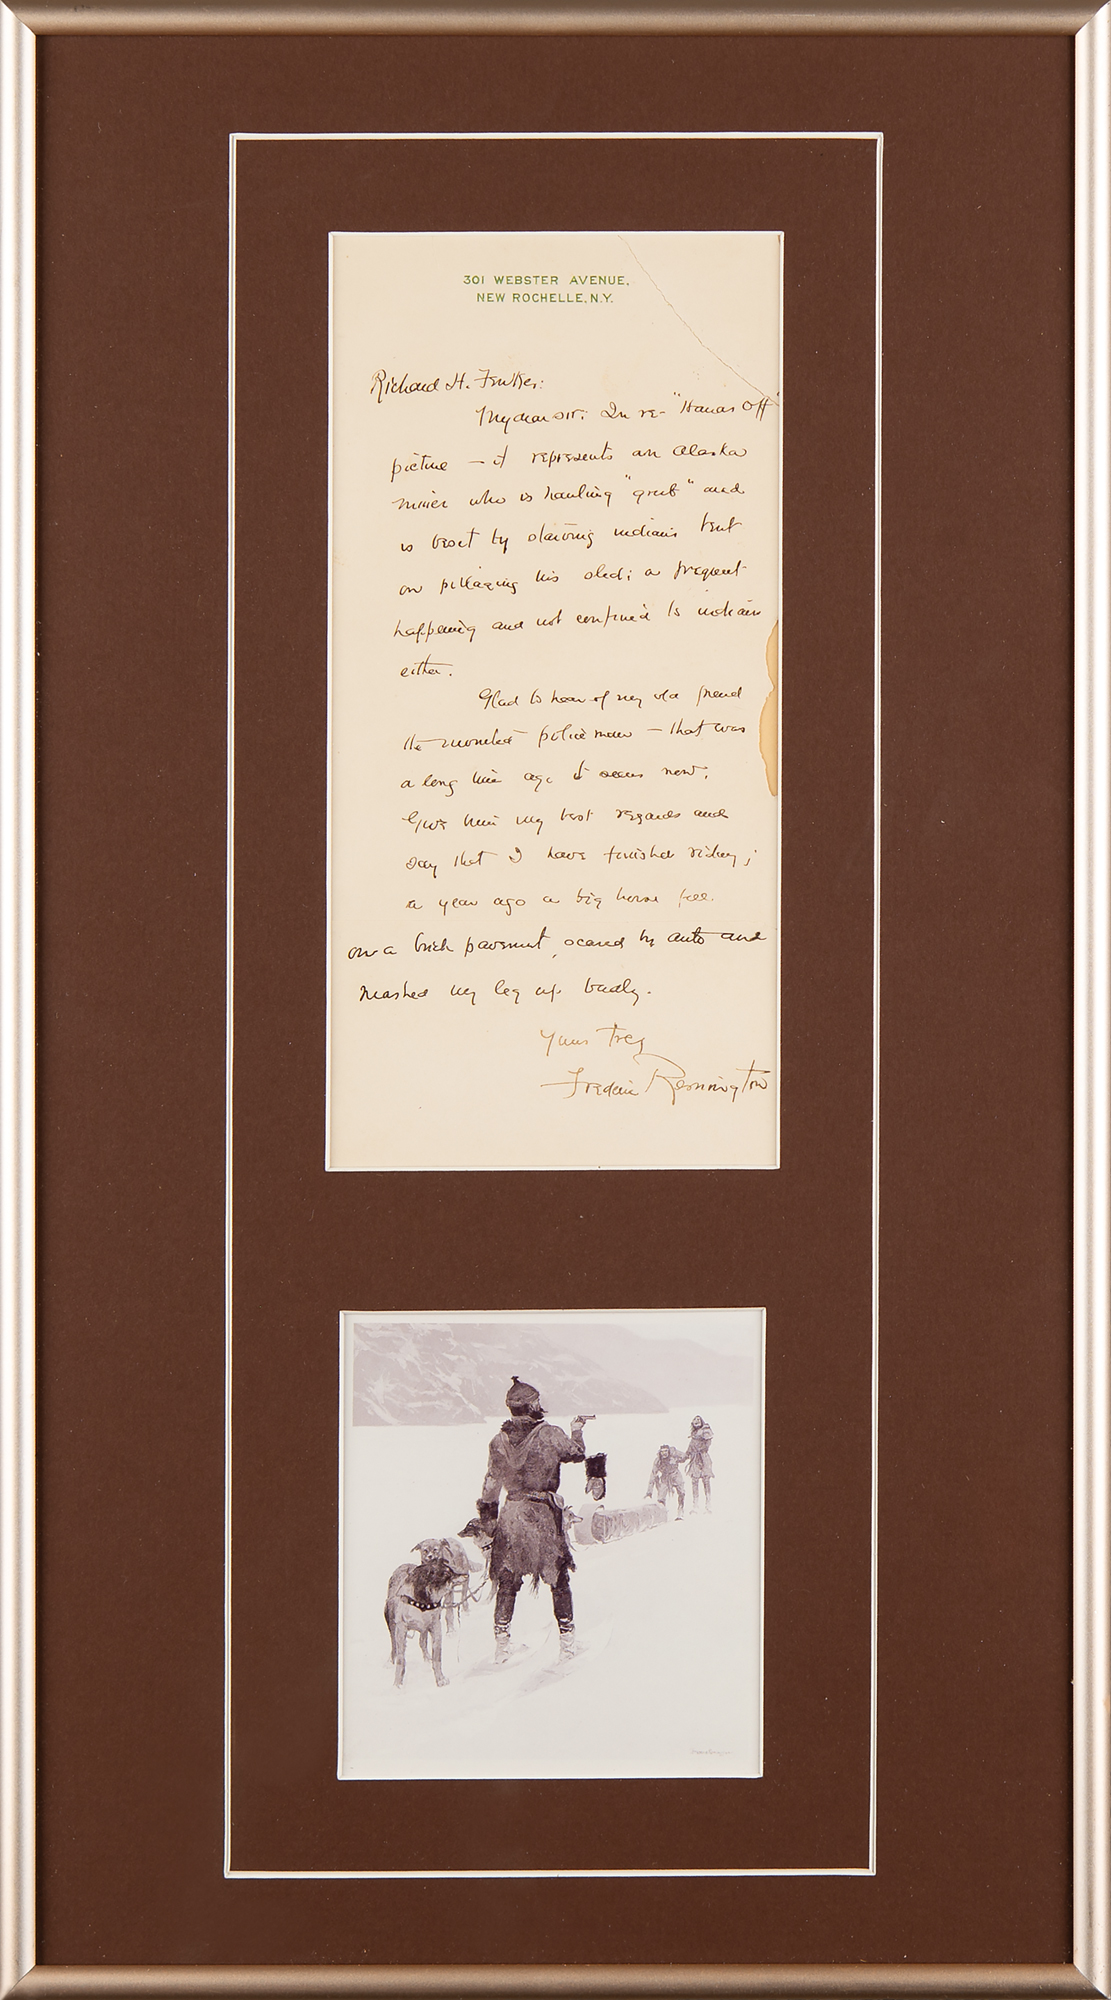 301 WEBSTER AVENUE,
NEW ROCHELLE, N.Y.
Richard H.
My dear sir: In re- "Hands Off"
picture — it represents an Alaska
miner who is hauling "grub" and
is beset by starving indians bent
on pillaging his sled; a frequent
happening and not confined to indians
either.
Glad to hear of my old friend
the mounted police man — that was
a long time ago it seems now.
Give him my best regards and
say that I have finished riding;
a year ago a big horse fell
on a brick pavement, scared by auto and
mashed my leg up badly.
Yours
Frederic Remington